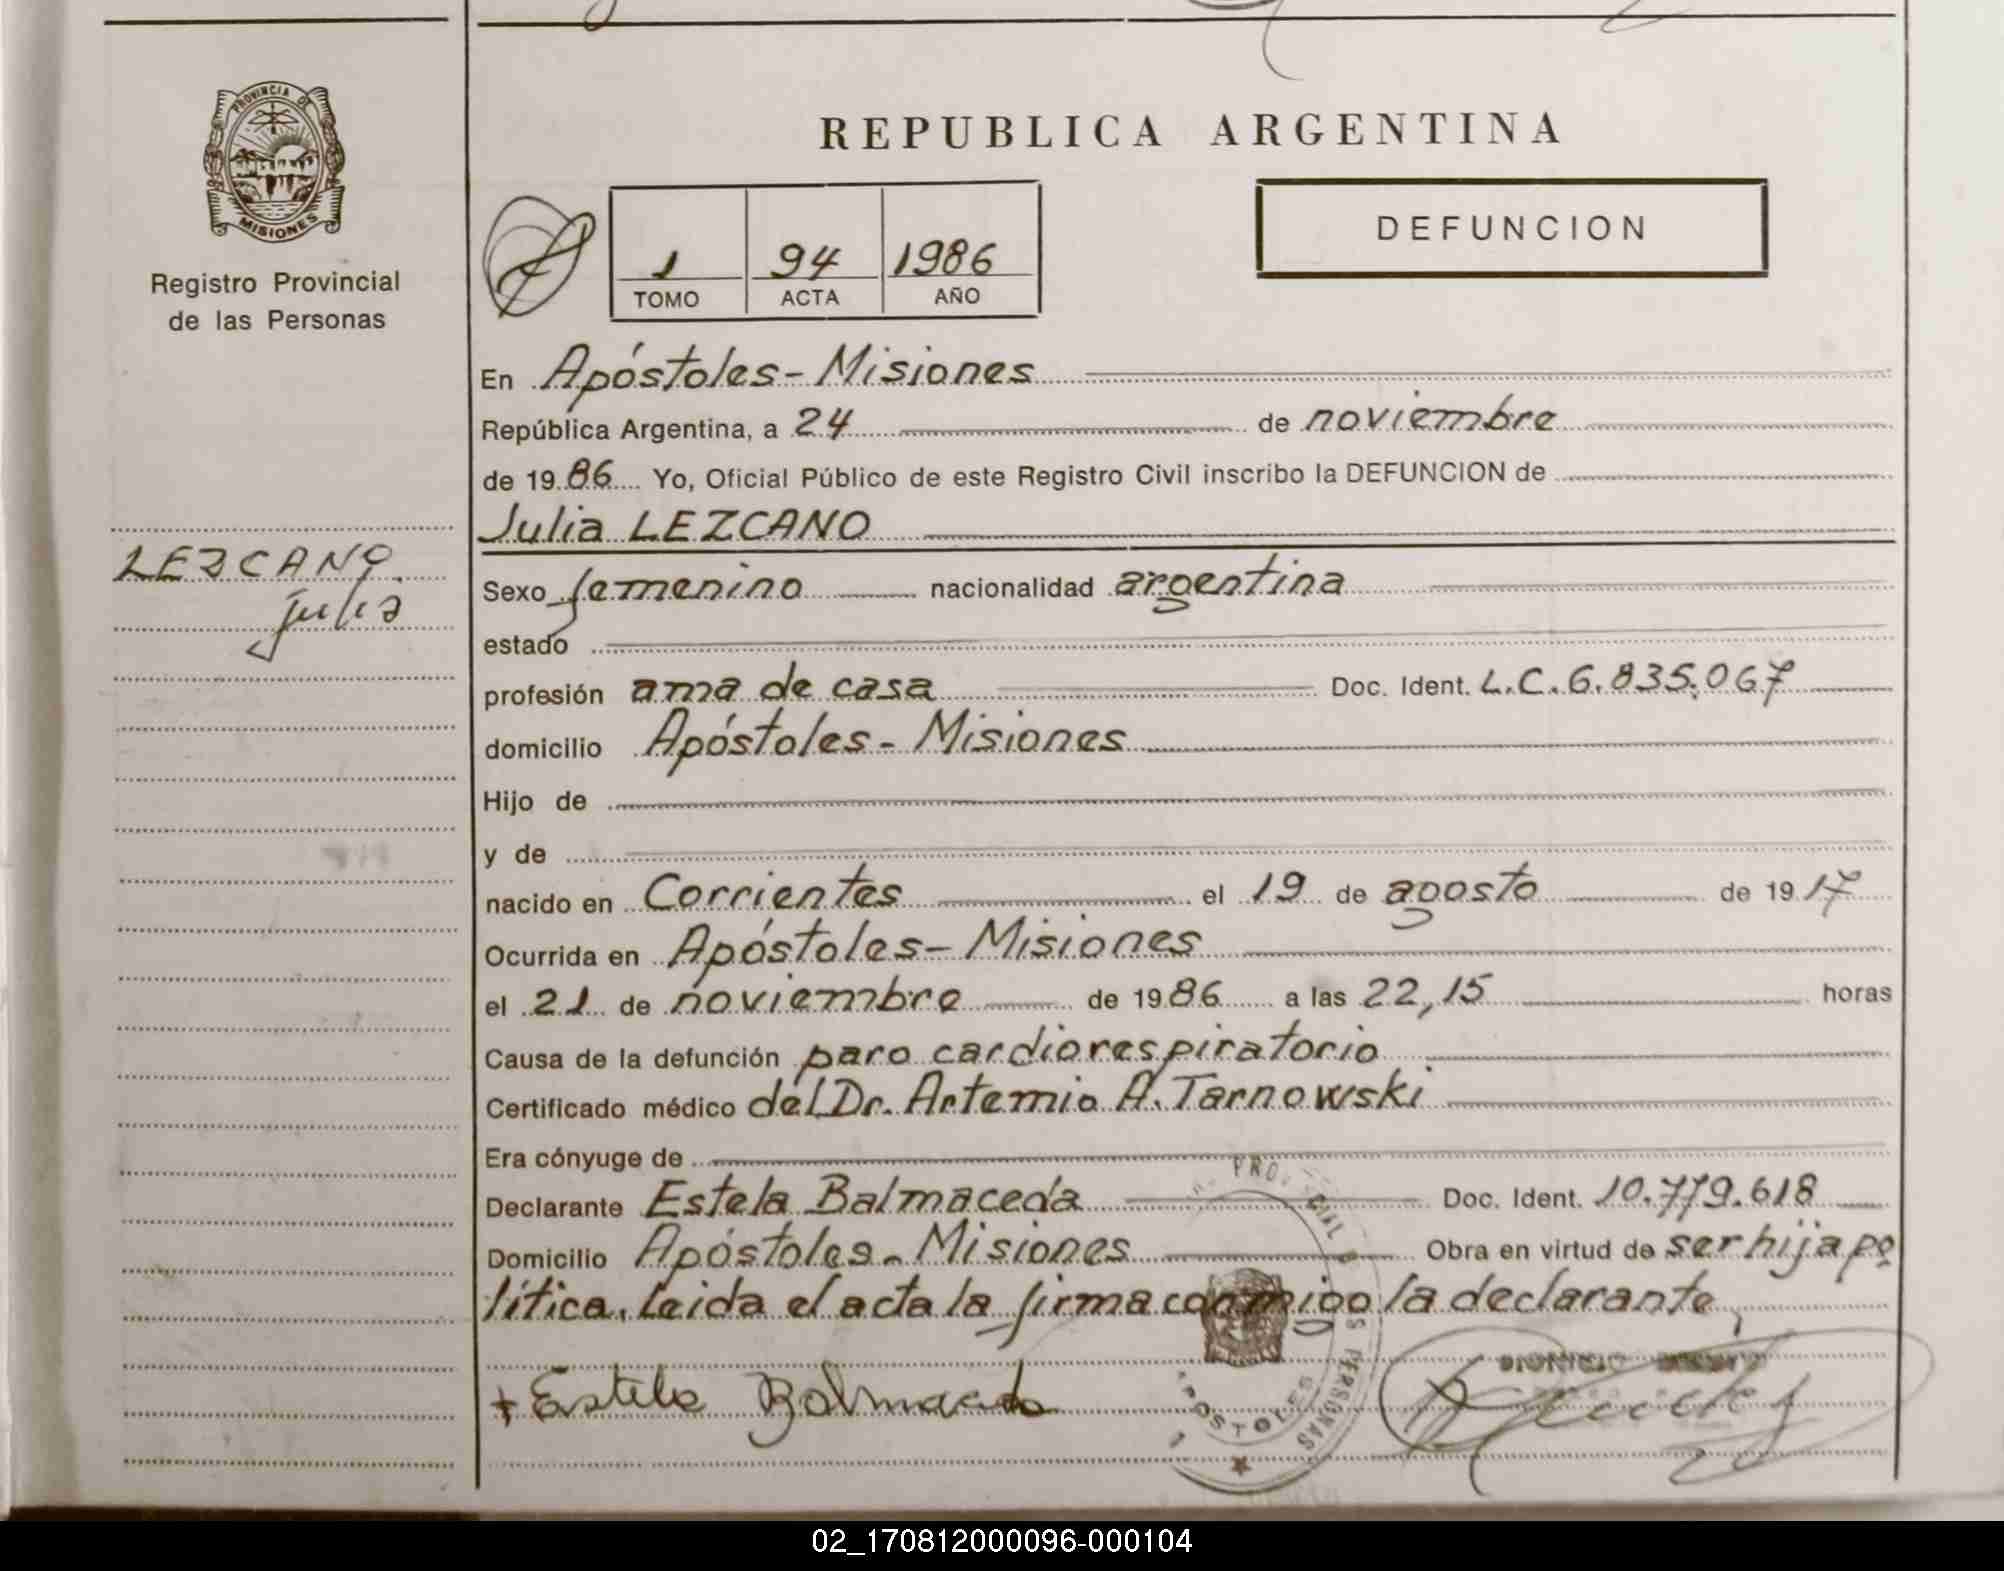 PROVINCIA DE
MISIONES
Registro Provincial
de las Personas
LEZCANO
Julia
REPUBLICA ARGENTINA
1 94 1986
TOMO ACTA AÑO
DEFUNCION
En Apóstoles - Misiones
República Argentina, a 24 de noviembre
de 1986 Yo, Oficial Público de este Registro Civil inscribo la DEFUNCION de
Julia LEZCANO
Sexo femenino nacionalidad argentina
estado
profesión ama de casa Doc. Ident. L.C. 6.835.067
domicilio Apóstoles - Misiones
Hijo de
y de
nacido en Corrientes el 19 de agosto de 1917
Ocurrida en Apóstoles - Misiones
el 21 de noviembre de 1986 a las 22,15 horas
Causa de la defunción paro cardiorespiratorio
Certificado médico del Dr. Artemio A. Tarnowski
Era cónyuge de
Declarante Estela Balmaceda Doc. Ident. 10.779.618
Domicilio Apóstoles - Misiones Obra en virtud de ser hija po
lítica. Leida el acta la firma conmigo la declarante
+ Estela Balmaceda
APOSTOLES
PERSONAS
02_170812000096-000104